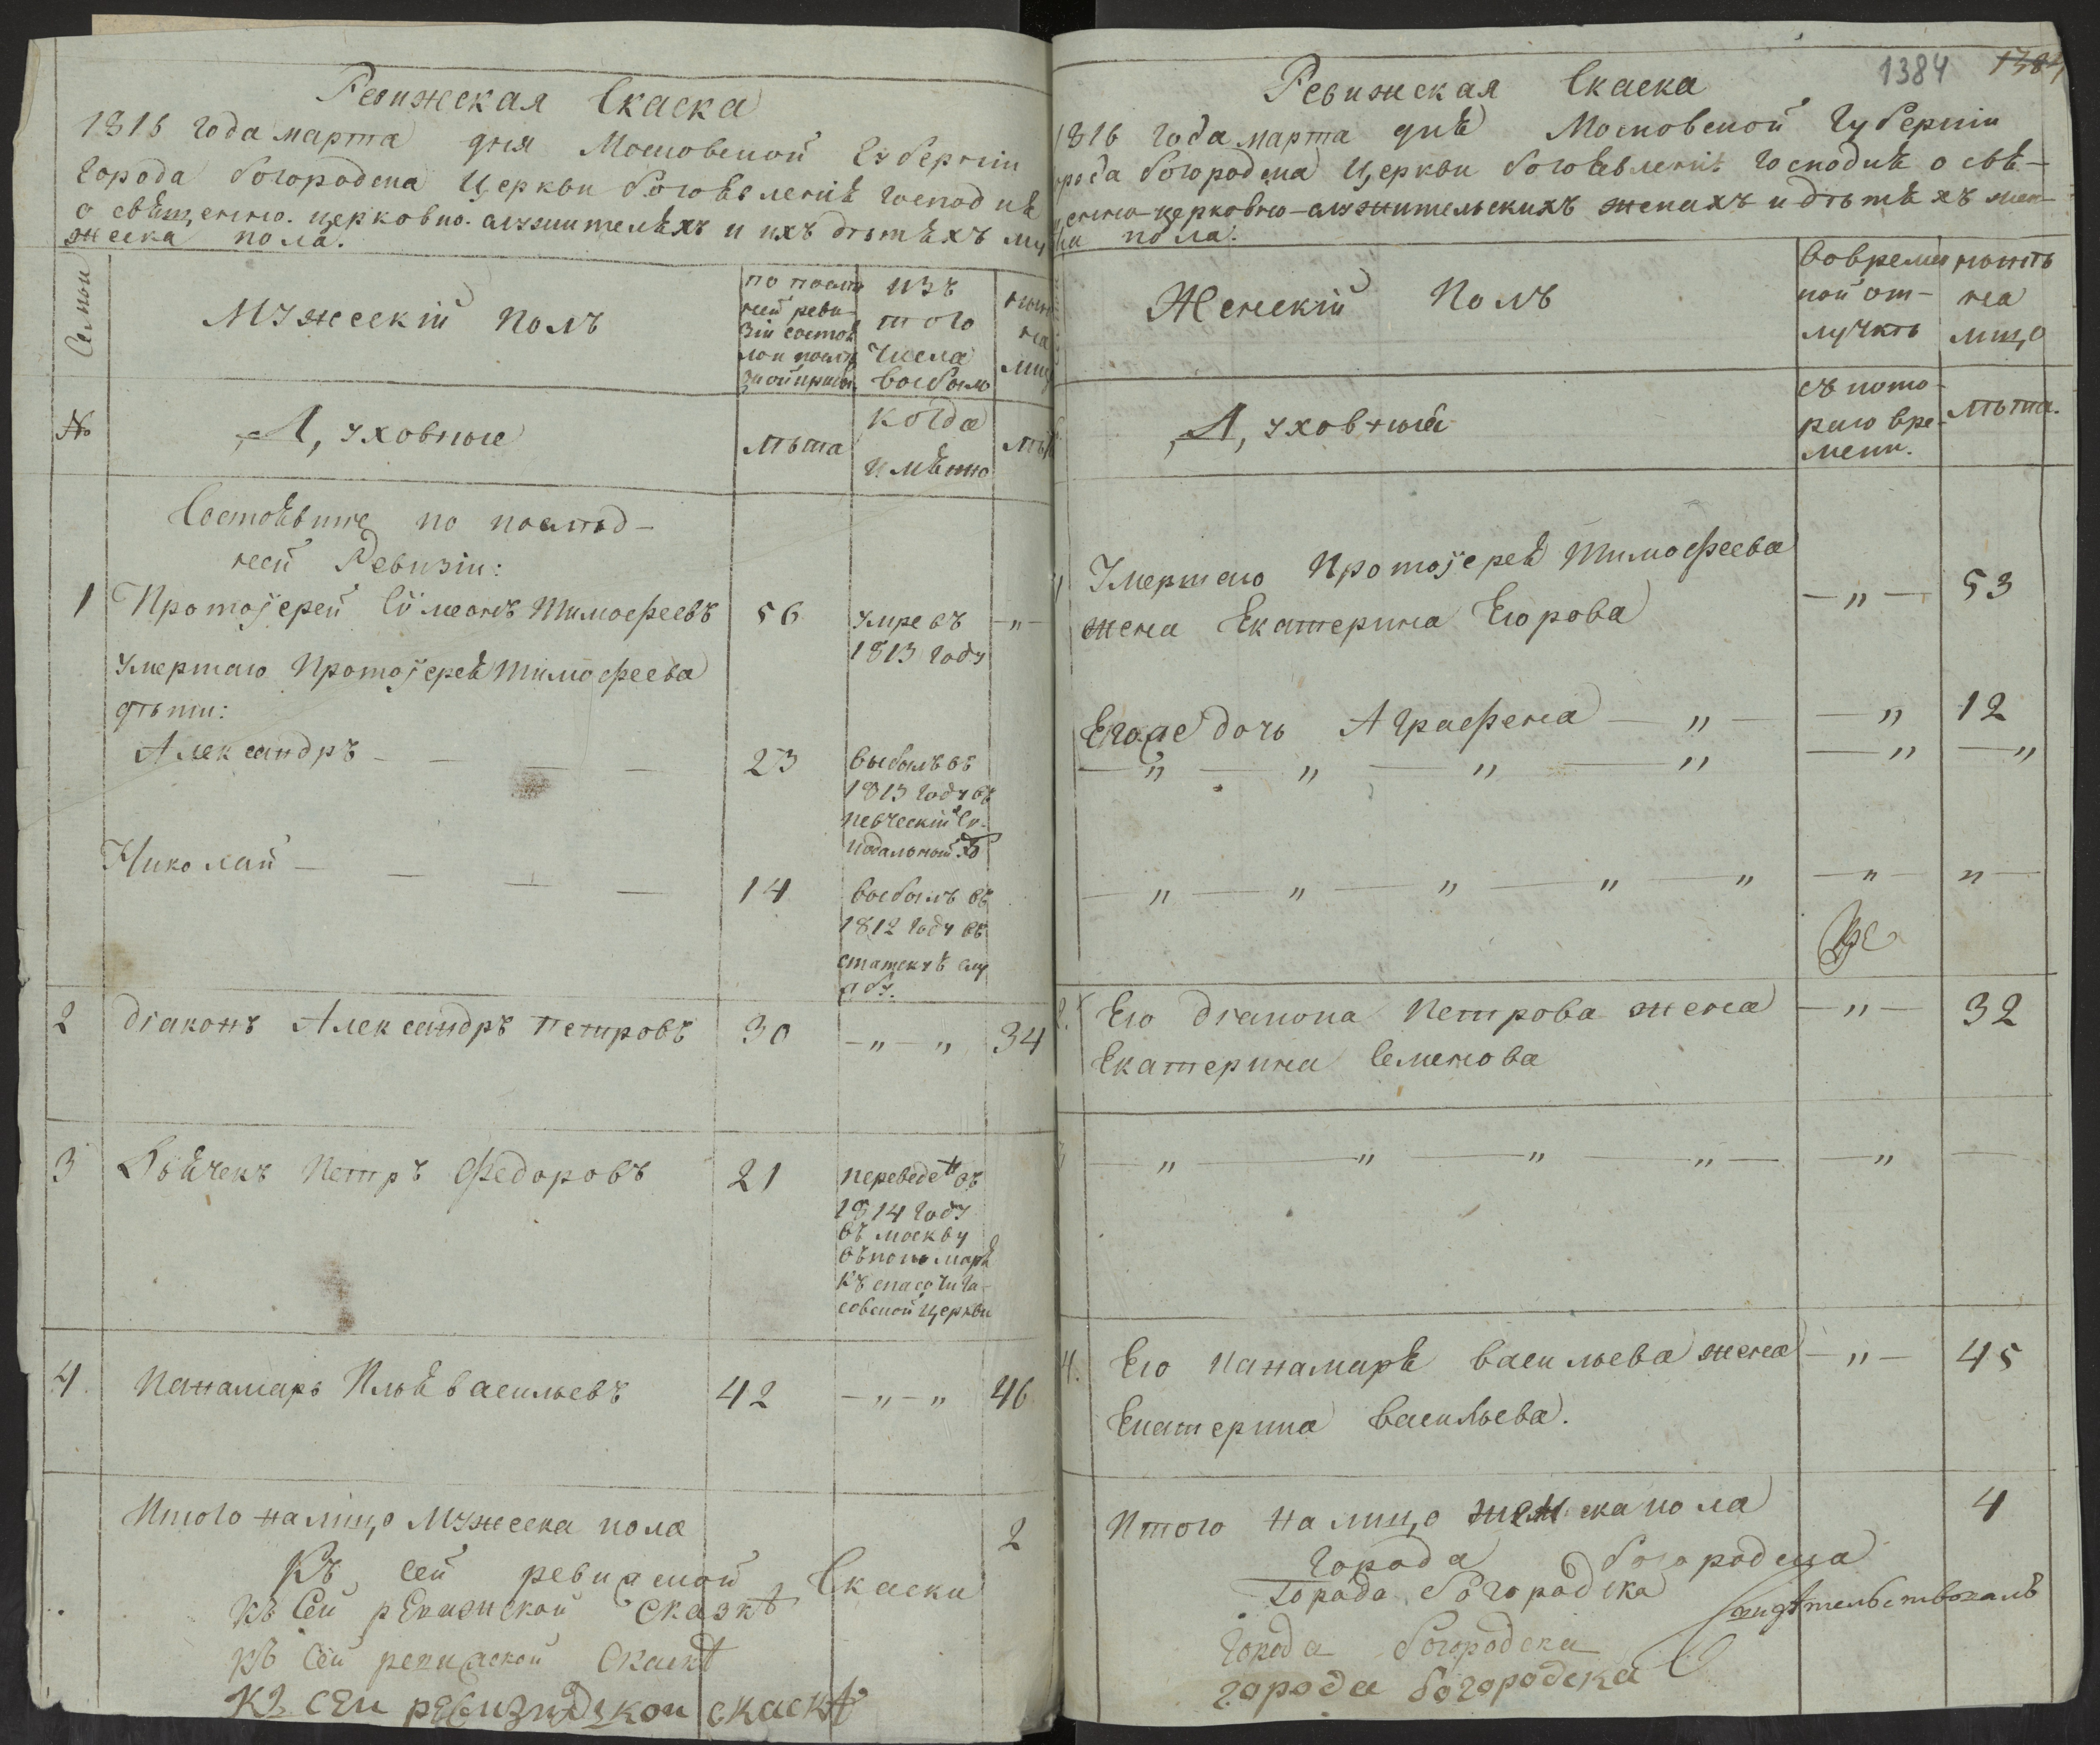 Ревижская Скаска
1816 года марта дня Московской Губернiи
города богородска Церкви богоѣвленiѣ господнѣ
о свѣщенно-церковно-служителѣхъ и ихъ дѣтѣхъ му
жеска пола.
Семьи
Мужескiй полъ
по послѣд
ней реви-
зiи состоѣ
ло и послѣ
оной прибы.
изъ
того
числа
выбыло
ныне
на
лиц
№
Духовные
лѣта
когда
имѣнно
лѣт
Состоѣвшие по послѣд-
ней Ревизiи:
1 Протоjерей Сiмеонъ Тимофеевъ 56 умре въ —„—
1813 году
умершаго Протоjереѣ Тимофеева
дѣти:
Александръ — — — — 23 выбылъ въ
1813 году въ
певческiй Си-
нодальной хо
Николай — — — — 14 выбылъ въ
1812 году въ
статскуѣ слу
жбу.
2 дiаконъ Александръ Петровъ 30 —„—„ 34
3 Дьѣчекъ Петръ Федоровъ 21 переведен въ
1814 году
въ москву
въ пономарѣ
къ спасочига-
совской церкви
4 Панамарь Ильѣ васильевъ 42 —„—„ 46
Итого налицо Мужеска пола 2
Къ сей ревижской Скаски
къ Сей рЕвижской Сказкѣ
къ Сей ревижской Скаскѣ
къ сЕи рЕвизидскои скаскѣ
1384 1384
Ревижская Скаска
1816 года марта днѣ Московской Губернiи
орода богородска Церкви богоѣвленiѣ господнѣ о свѣ-
щенно-церковно-служительскихъ женахъ и дѣтѣхъ жен-
ска пола.
Женскiй полъ
во времен
ной от-
лучкѣ
нынѣ
на
лицо
Духовныѣ
съ кото-
раго вре-
мени.
лѣта.
1 Умершаго Протоjереѣ Тимофеева
жена Екатерина Егорова —„— 53
Егоже дочь Аграфена — „ — — „ 12
— „ — „ — „ — „ — „ — „
— „ — „ — „ — „ — „ — „ — „ —
2. Его дiакона Петрова жена —„— 32
Екатерина Семенова
3 — „ — „ — „ — „ — — „ —
4. Его панамарѣ васильева жена —„— 45
Екатерина васильева.
Итого на лицо женска пола 4
города богородска
города Богородска
Свидѣтельствовалъ
города богородска
города богородска